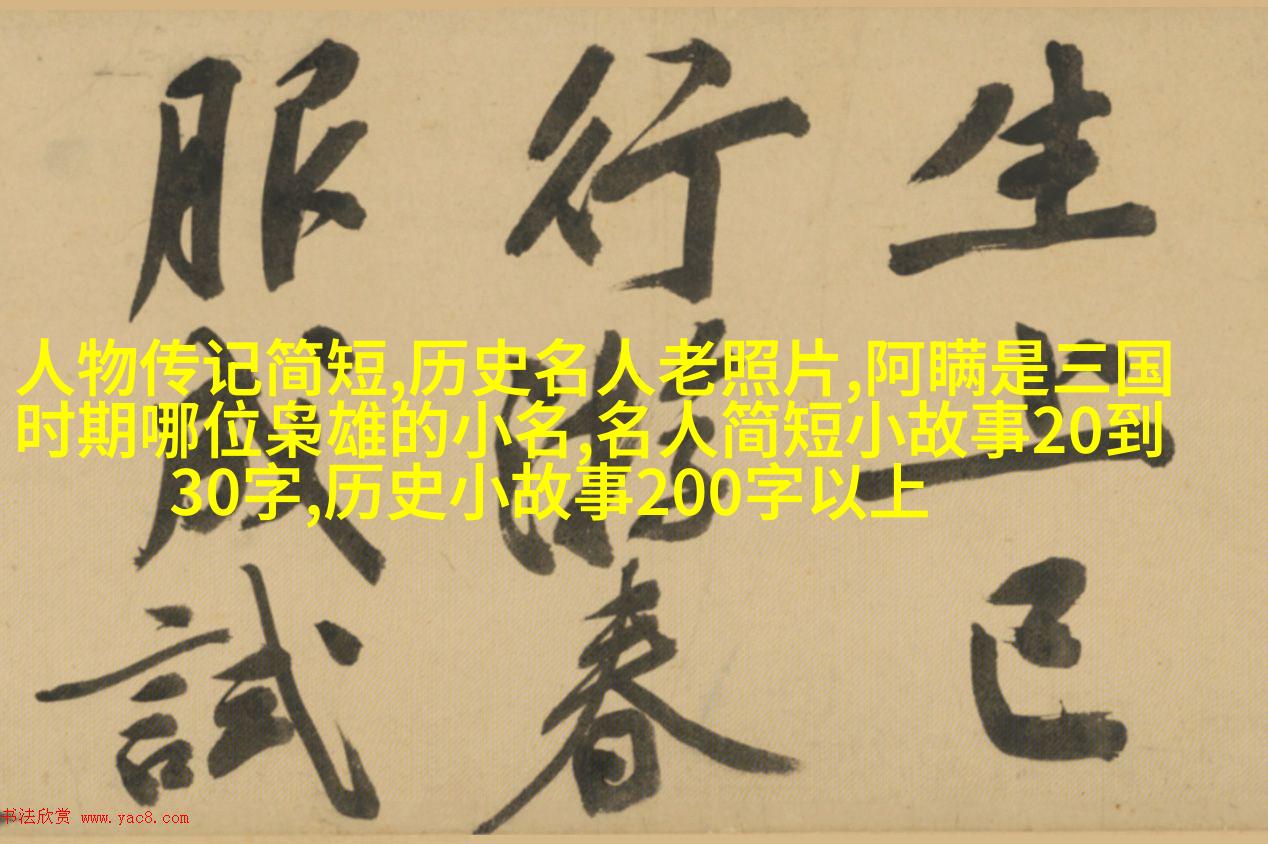 生上巳
行春
服成試
人物传记简短,历史名人老照片,阿瞒是三国
时期哪位枭雄的小名,名人简短小故事20到
30字,历史小故事200字以上
书法欣赏 www.yac8.com